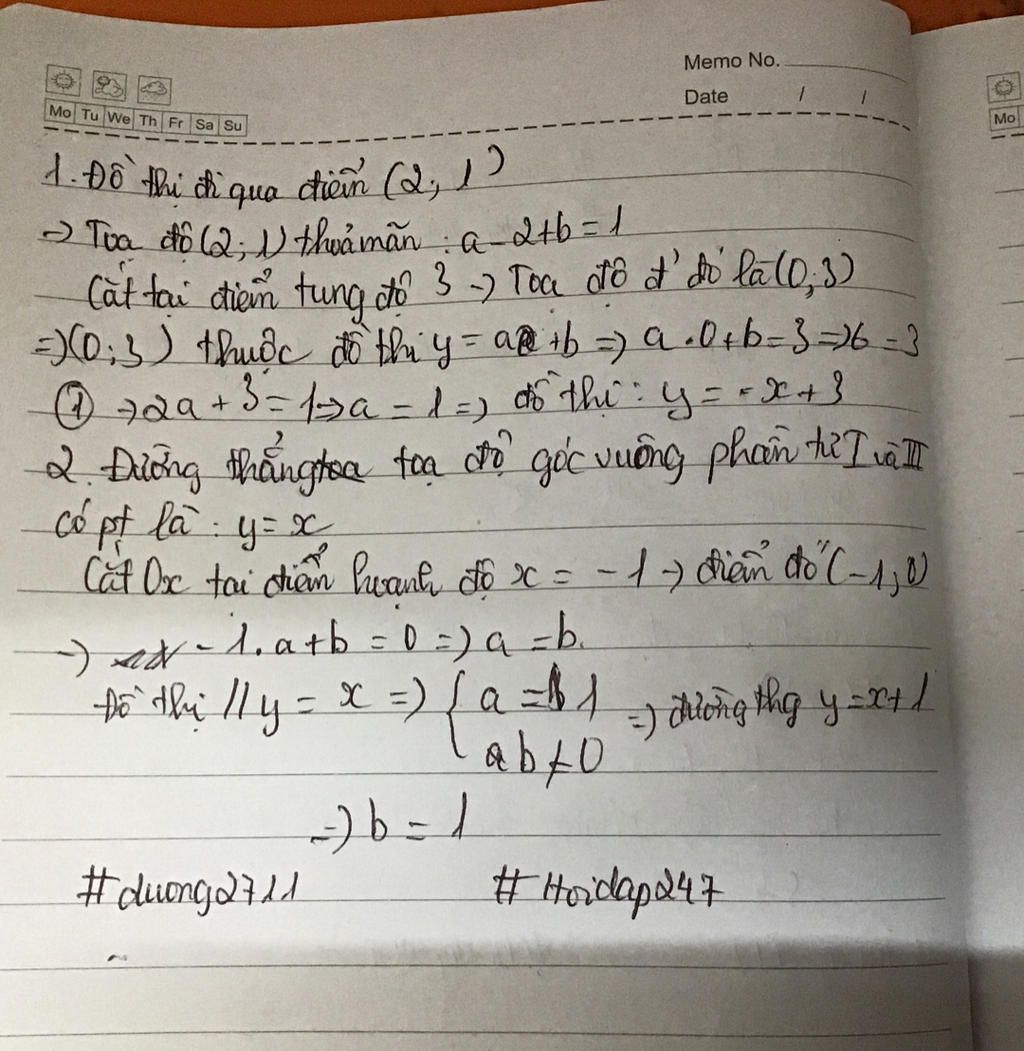 Memo No.
Date / /
Mo Tu We Th Fr Sa Su
Mo
1. Đồ thị đi qua điểm (2; 1)
→ Toạ độ (2; 1) thoả mãn: a - 2 + b = 1
Cắt tại điểm tung độ 3 → Toạ độ đ' đó là (0; 3)
=> (0; 3) thuộc đồ thị y = a + b => a . 0 + b = 3 => b = 3
① → 2a + 3 = 1 → a = 1 => đồ thị: y = -x + 3
2. Đường thẳng toạ độ góc vuông phần tử I và III
có pt là: y = x
Cắt Ox tại điểm hoạnh độ x = -1 → điểm đó (-1; 0)
→ -1. a + b = 0 => a = b.
Đồ thị // y = x => { a = 1 => đường thg y = x + 1
b ≠ 0
=> b = 1
#duong2711 #Hoidap247